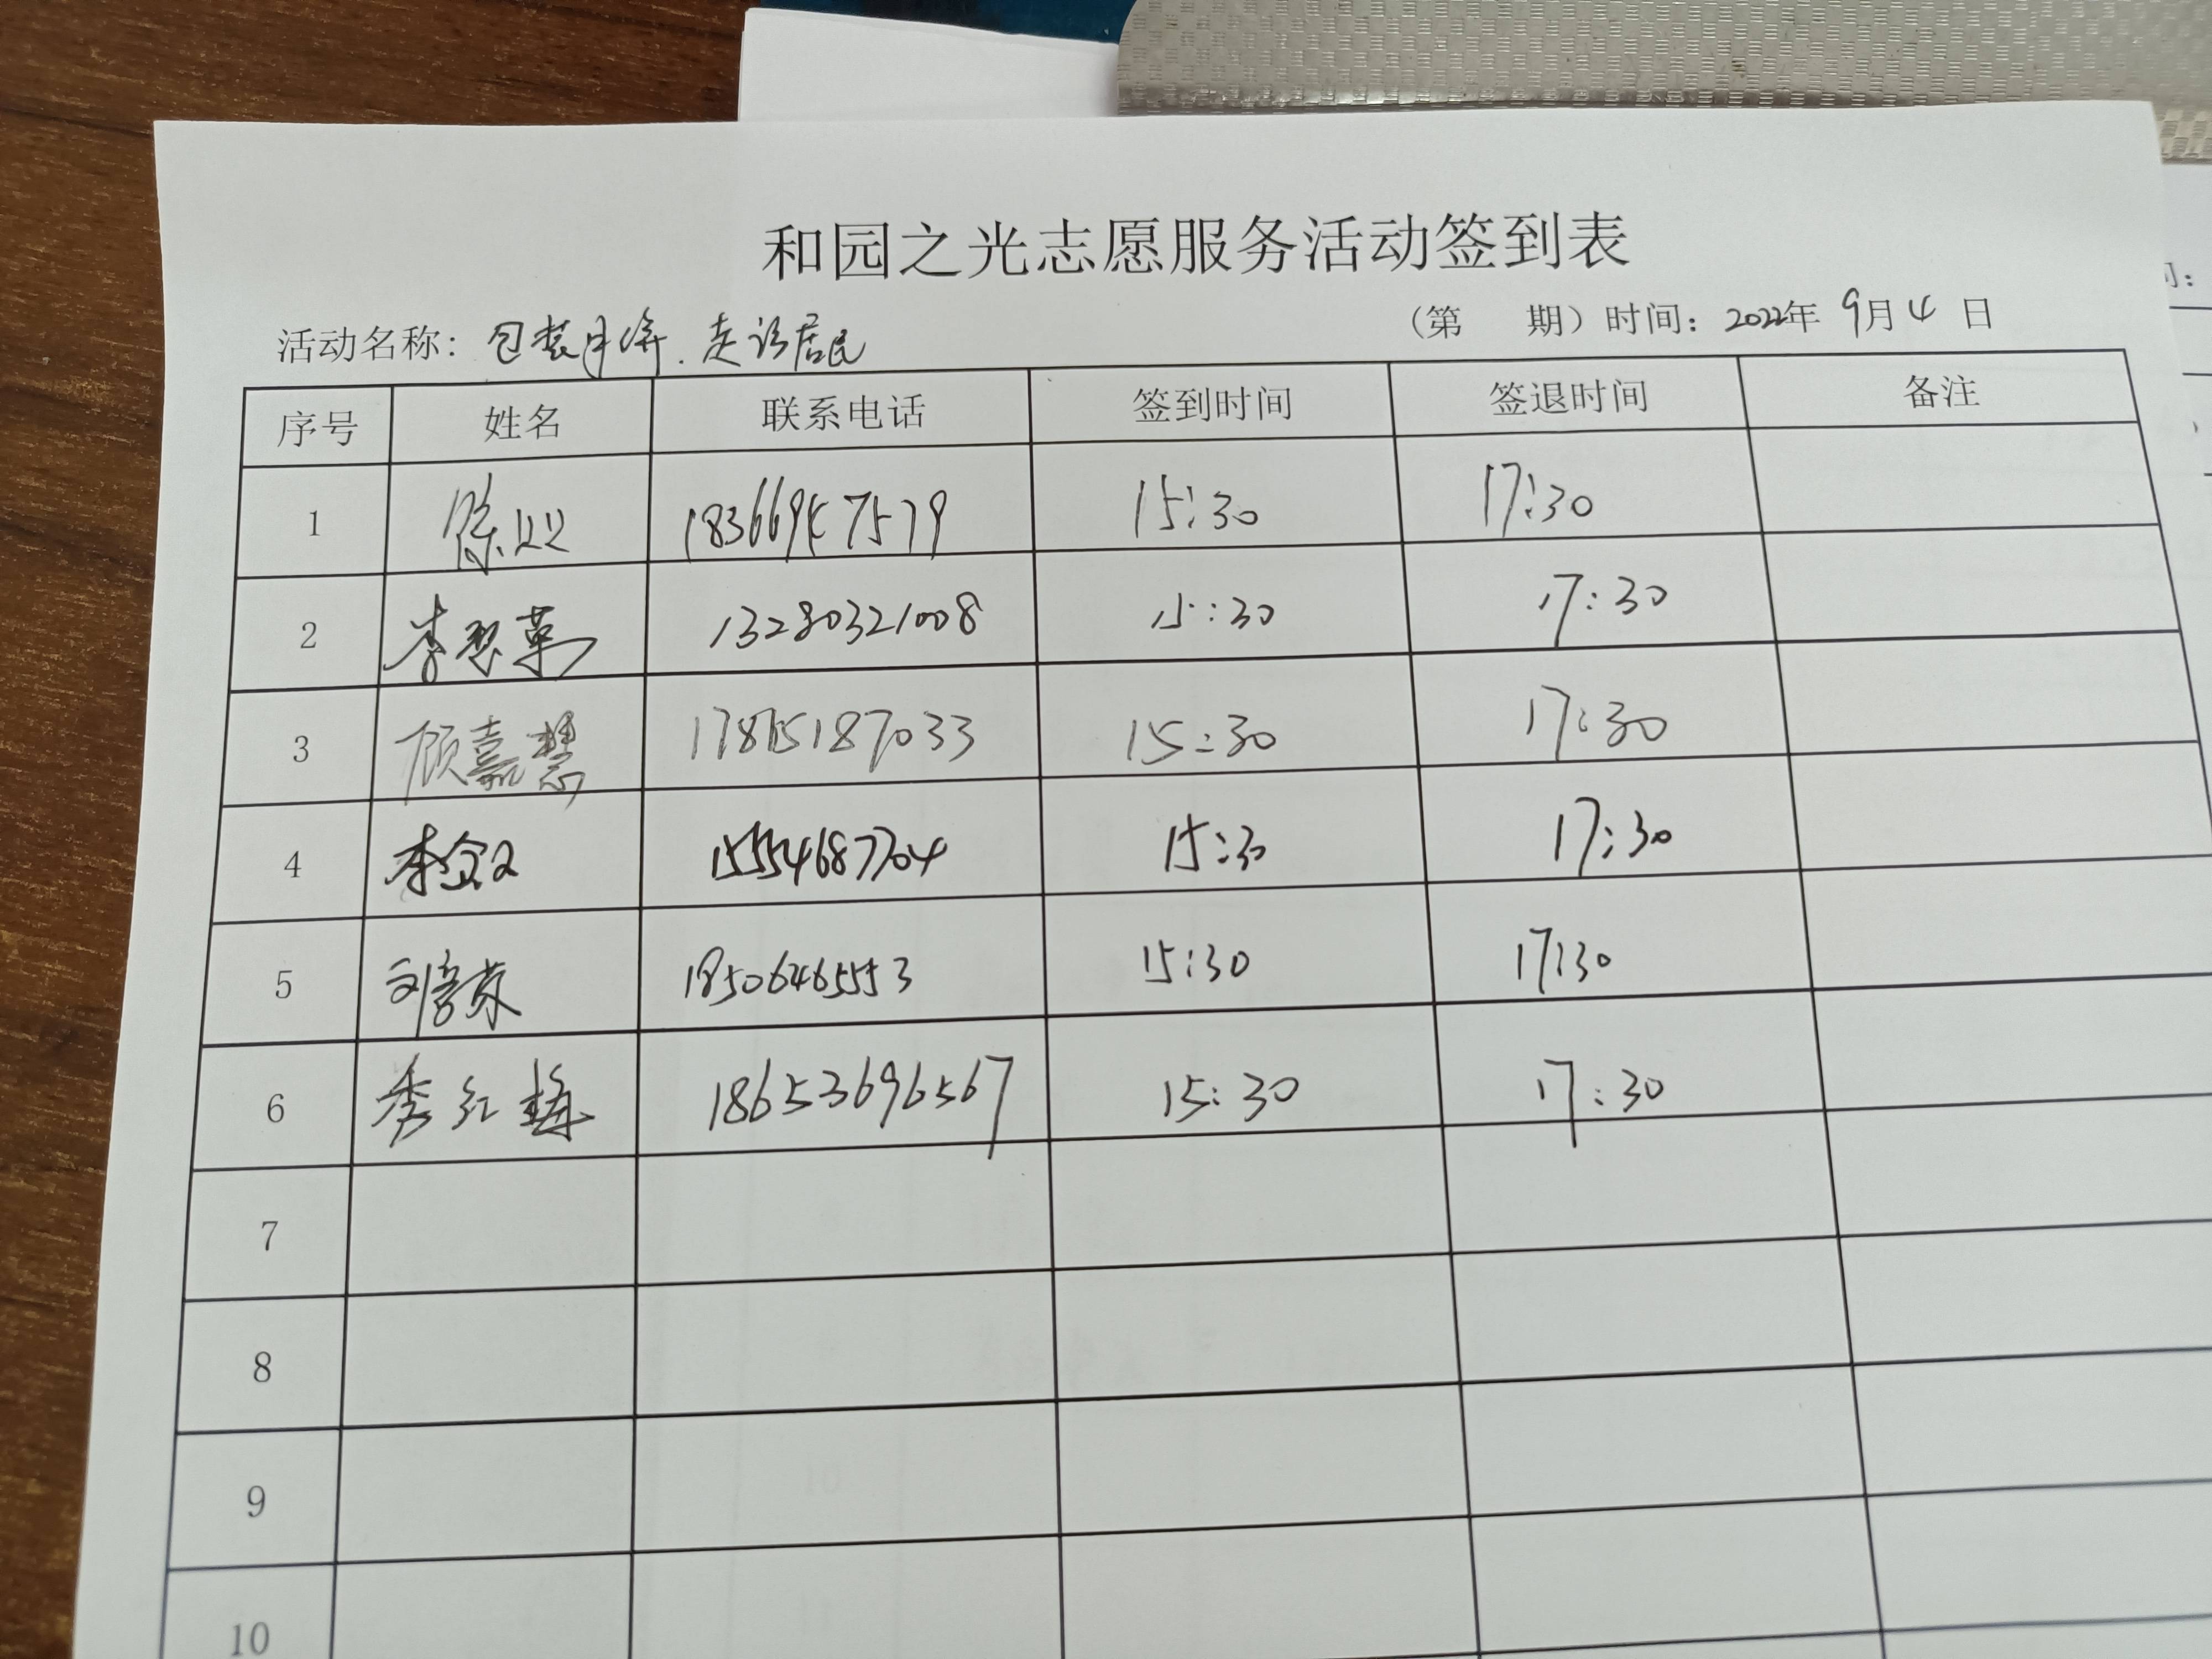 和园之光志愿服务活动签到表
活动名称: 包装月饼.走访居民 (第 期) 时间: 2022年 9月 4 日
序号 姓名 联系电话 签到时间 签退时间 备注
1 15:30 17:30
2 13280321008 15:30 17:30
3 顾嘉慧 17865187033 15:30 17:30
4 15554687704 15:30 17:30
5 18506465553 15:30 17:30
6 季红梅 18653696567 15:30 17:30
7
8
9
10